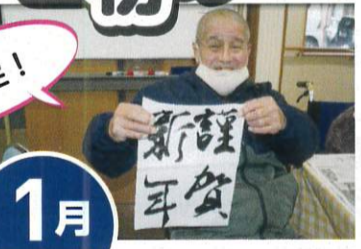 初
謹賀
新年
1月